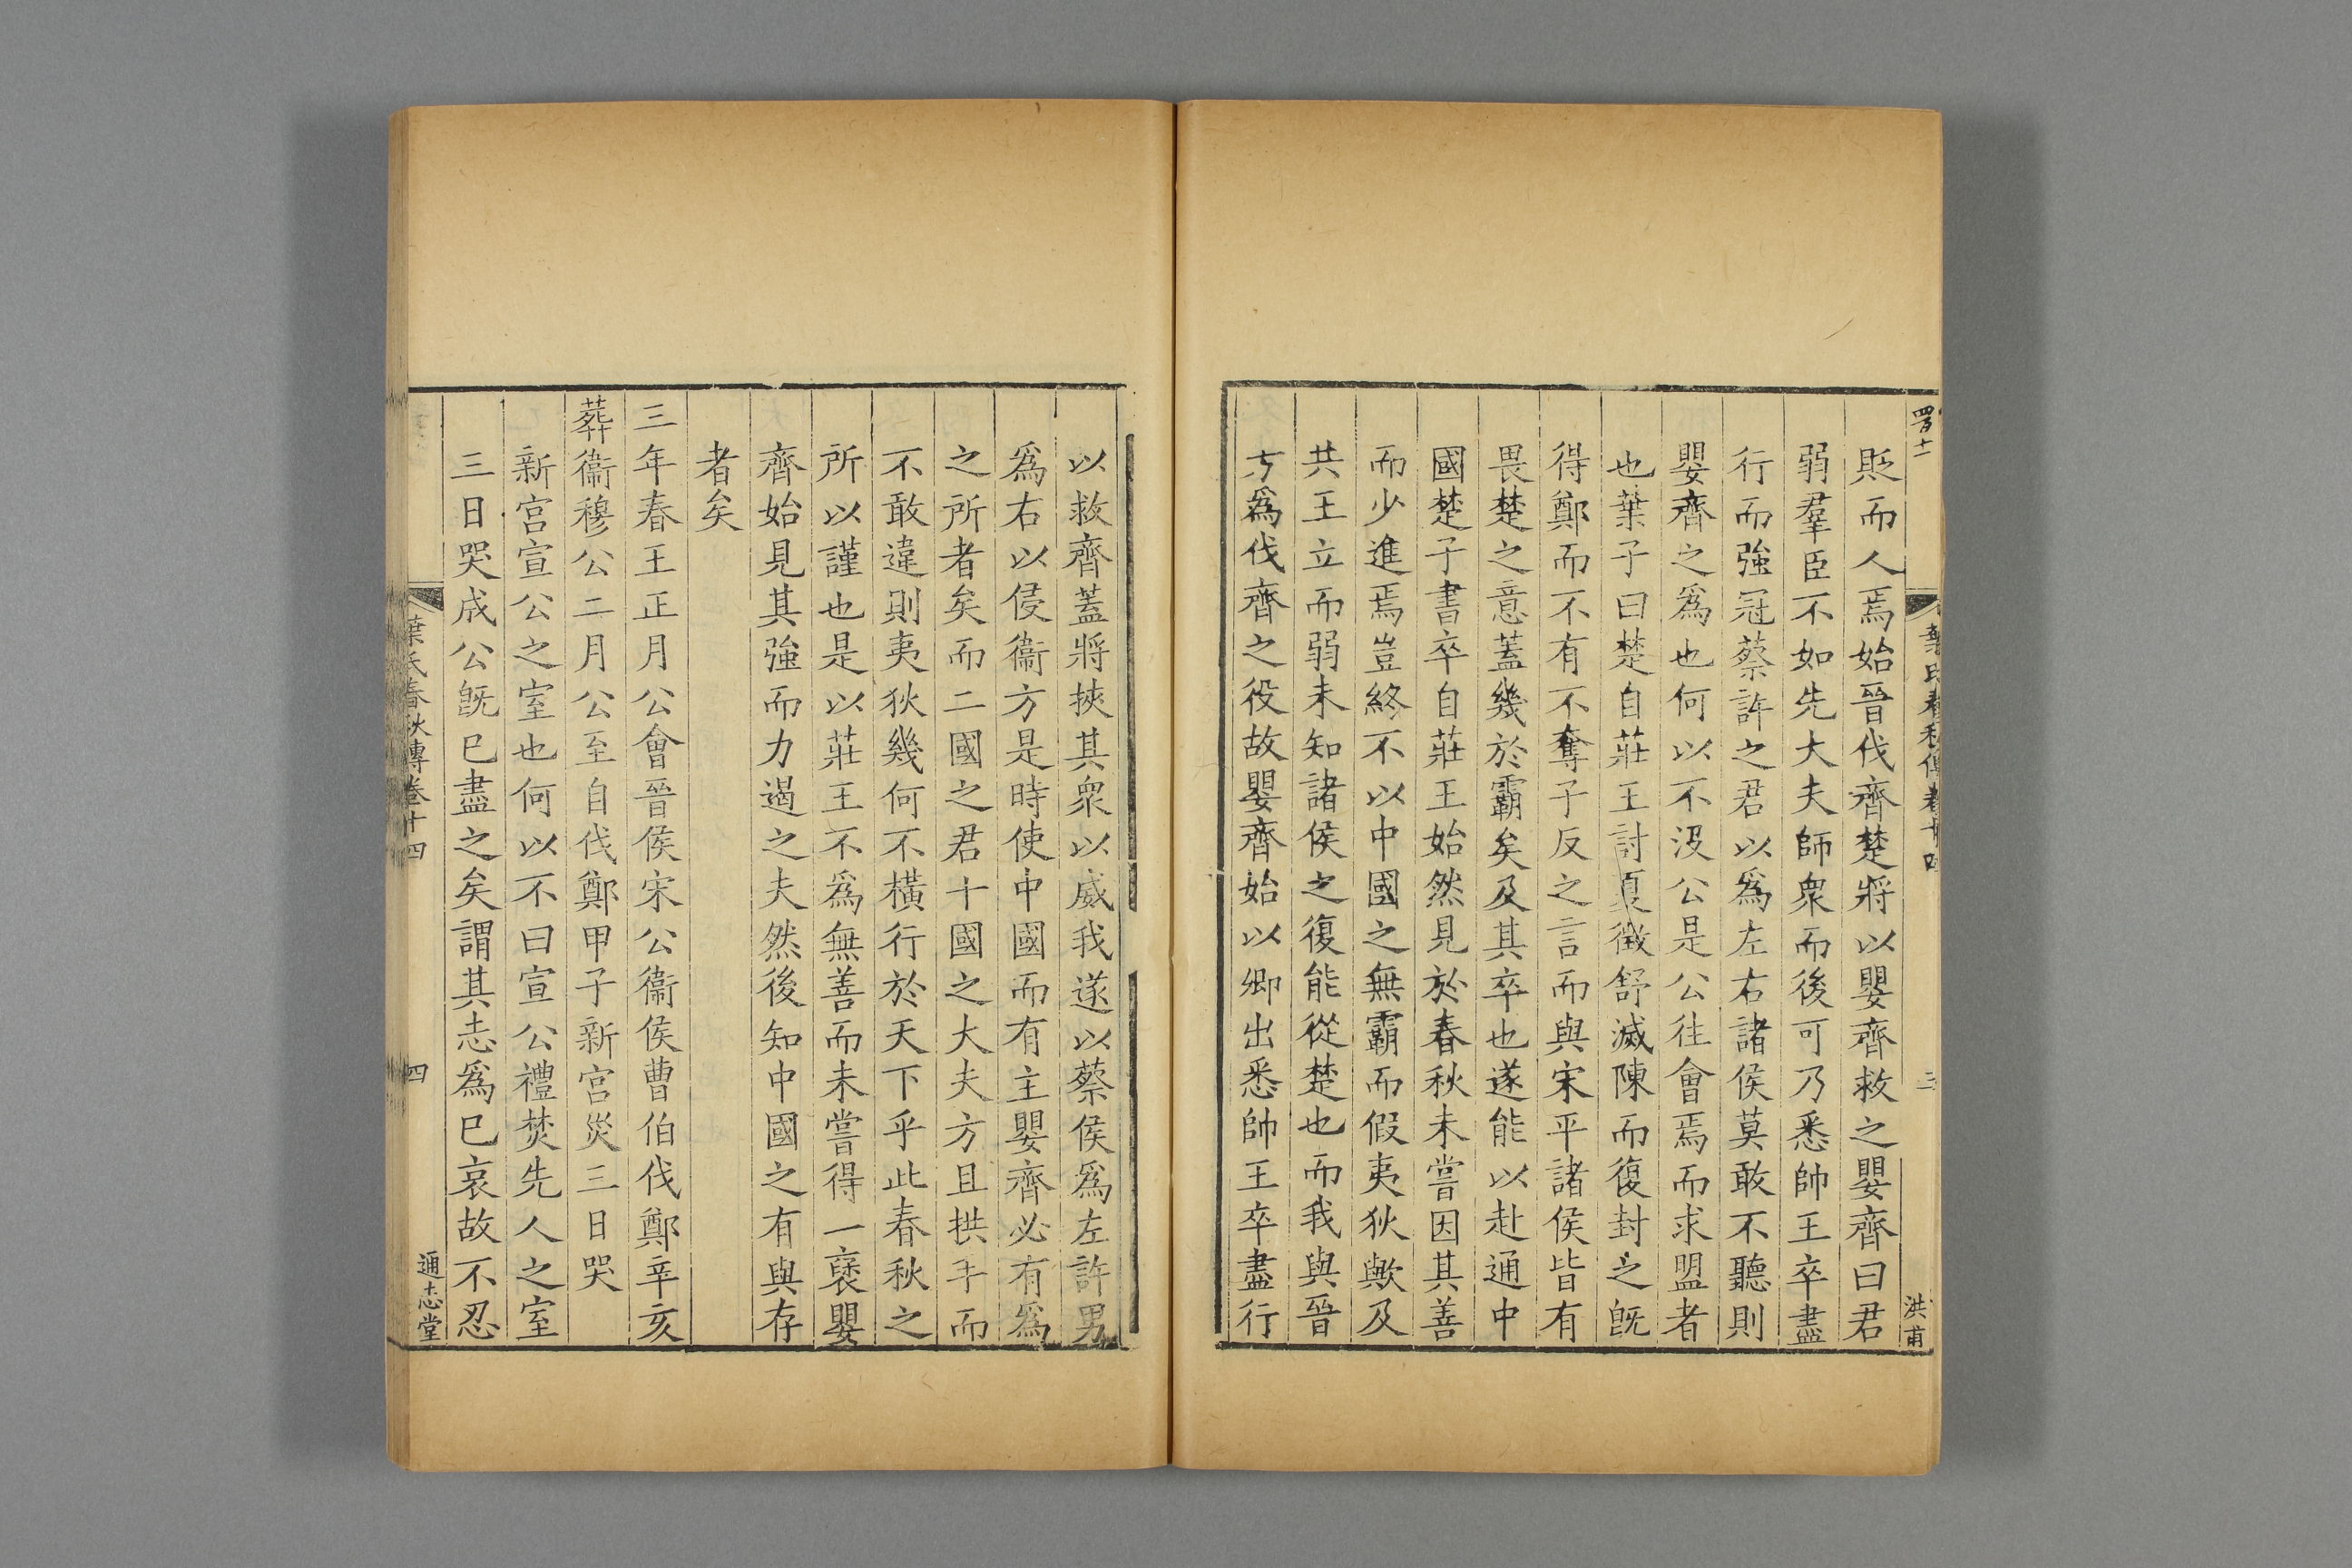 貶而人焉始晉伐齊楚將以嬰齊救之嬰齊曰君
弱羣臣不如先大夫師衆而後可乃悉帥王卒盡
行而強冠蔡許之君以爲左右諸侯莫敢不聽則
嬰齊之爲也何以不没公是公往會焉而求盟者
也葉子曰楚自莊王討夏徵舒滅陳而復封之旣
得鄭而不有不奪子反之言而與宋平諸侯皆有
畏楚之意蓋幾於霸矣及其卒也遂能以赴通中
國楚子書卒自莊王始然見於春秋未嘗因其善
而少進焉豈終不以中國之無霸而假夷狄歟及
共王立而弱未知諸侯之復能從楚也而我與晉
方爲伐齊之役故嬰齊始以卿出悉帥王卒盡行
洪甫
以救齊蓋將挾其衆以威我遂以蔡侯爲左許男
爲右以侵衞方是時使中國而有主嬰齊必有爲
之所者矣而二國之君十國之大夫方且拱手而
不敢違則夷狄幾何不橫行於天下乎此春秋之
所以謹也是以莊王不爲無善而未嘗得一襃嬰
齊始見其強而力遏之夫然後知中國之有與存
者矣
三年春王正月公會晉侯宋公衞侯曹伯伐鄭辛亥
葬衞穆公二月公至自伐鄭甲子新宮災三日哭
新宮宣公之室也何以不曰宣公禮焚先人之室
三日哭成公旣已盡之矣謂其志爲已哀故不忍
葉氏春秋傳卷十四
四
通志堂